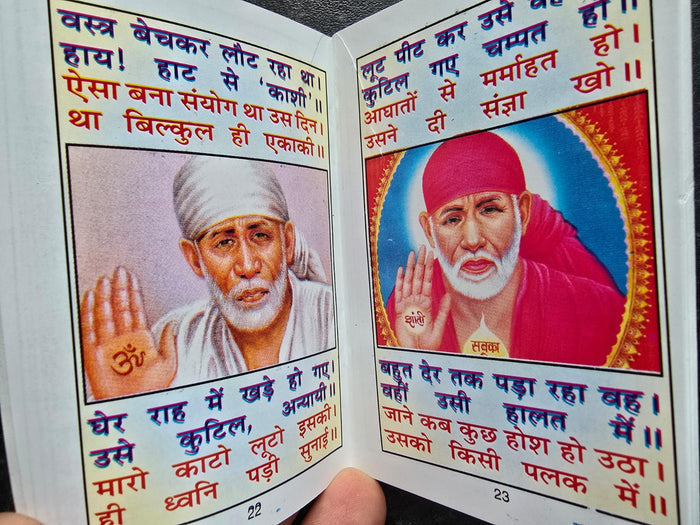 वस्त्र बेचकर लौट रहा था।
हाय! हाट से 'काशी'॥
ऐसा बना संयोग था उस दिन।
था बिल्कुल ही एकाकी॥
ॐ
घेर राह में खड़े हो गए।
उसे कुटिल, अन्यायी॥
मारो काटो लूटो इसकी।
ही ध्वनि पड़ी सुनाई॥
22
लूट पीट कर उसे वह हो॥
कुटिल गए चम्पत हो।
आघातों से मर्माहत हो।
उसने दी संज्ञा खो॥
शांती
सबका
बहुत देर तक पड़ा रहा वह।
वहीं उसी हालत में॥
जाने कब कुछ होश हो उठा।
उसको किसी पलक में॥
23